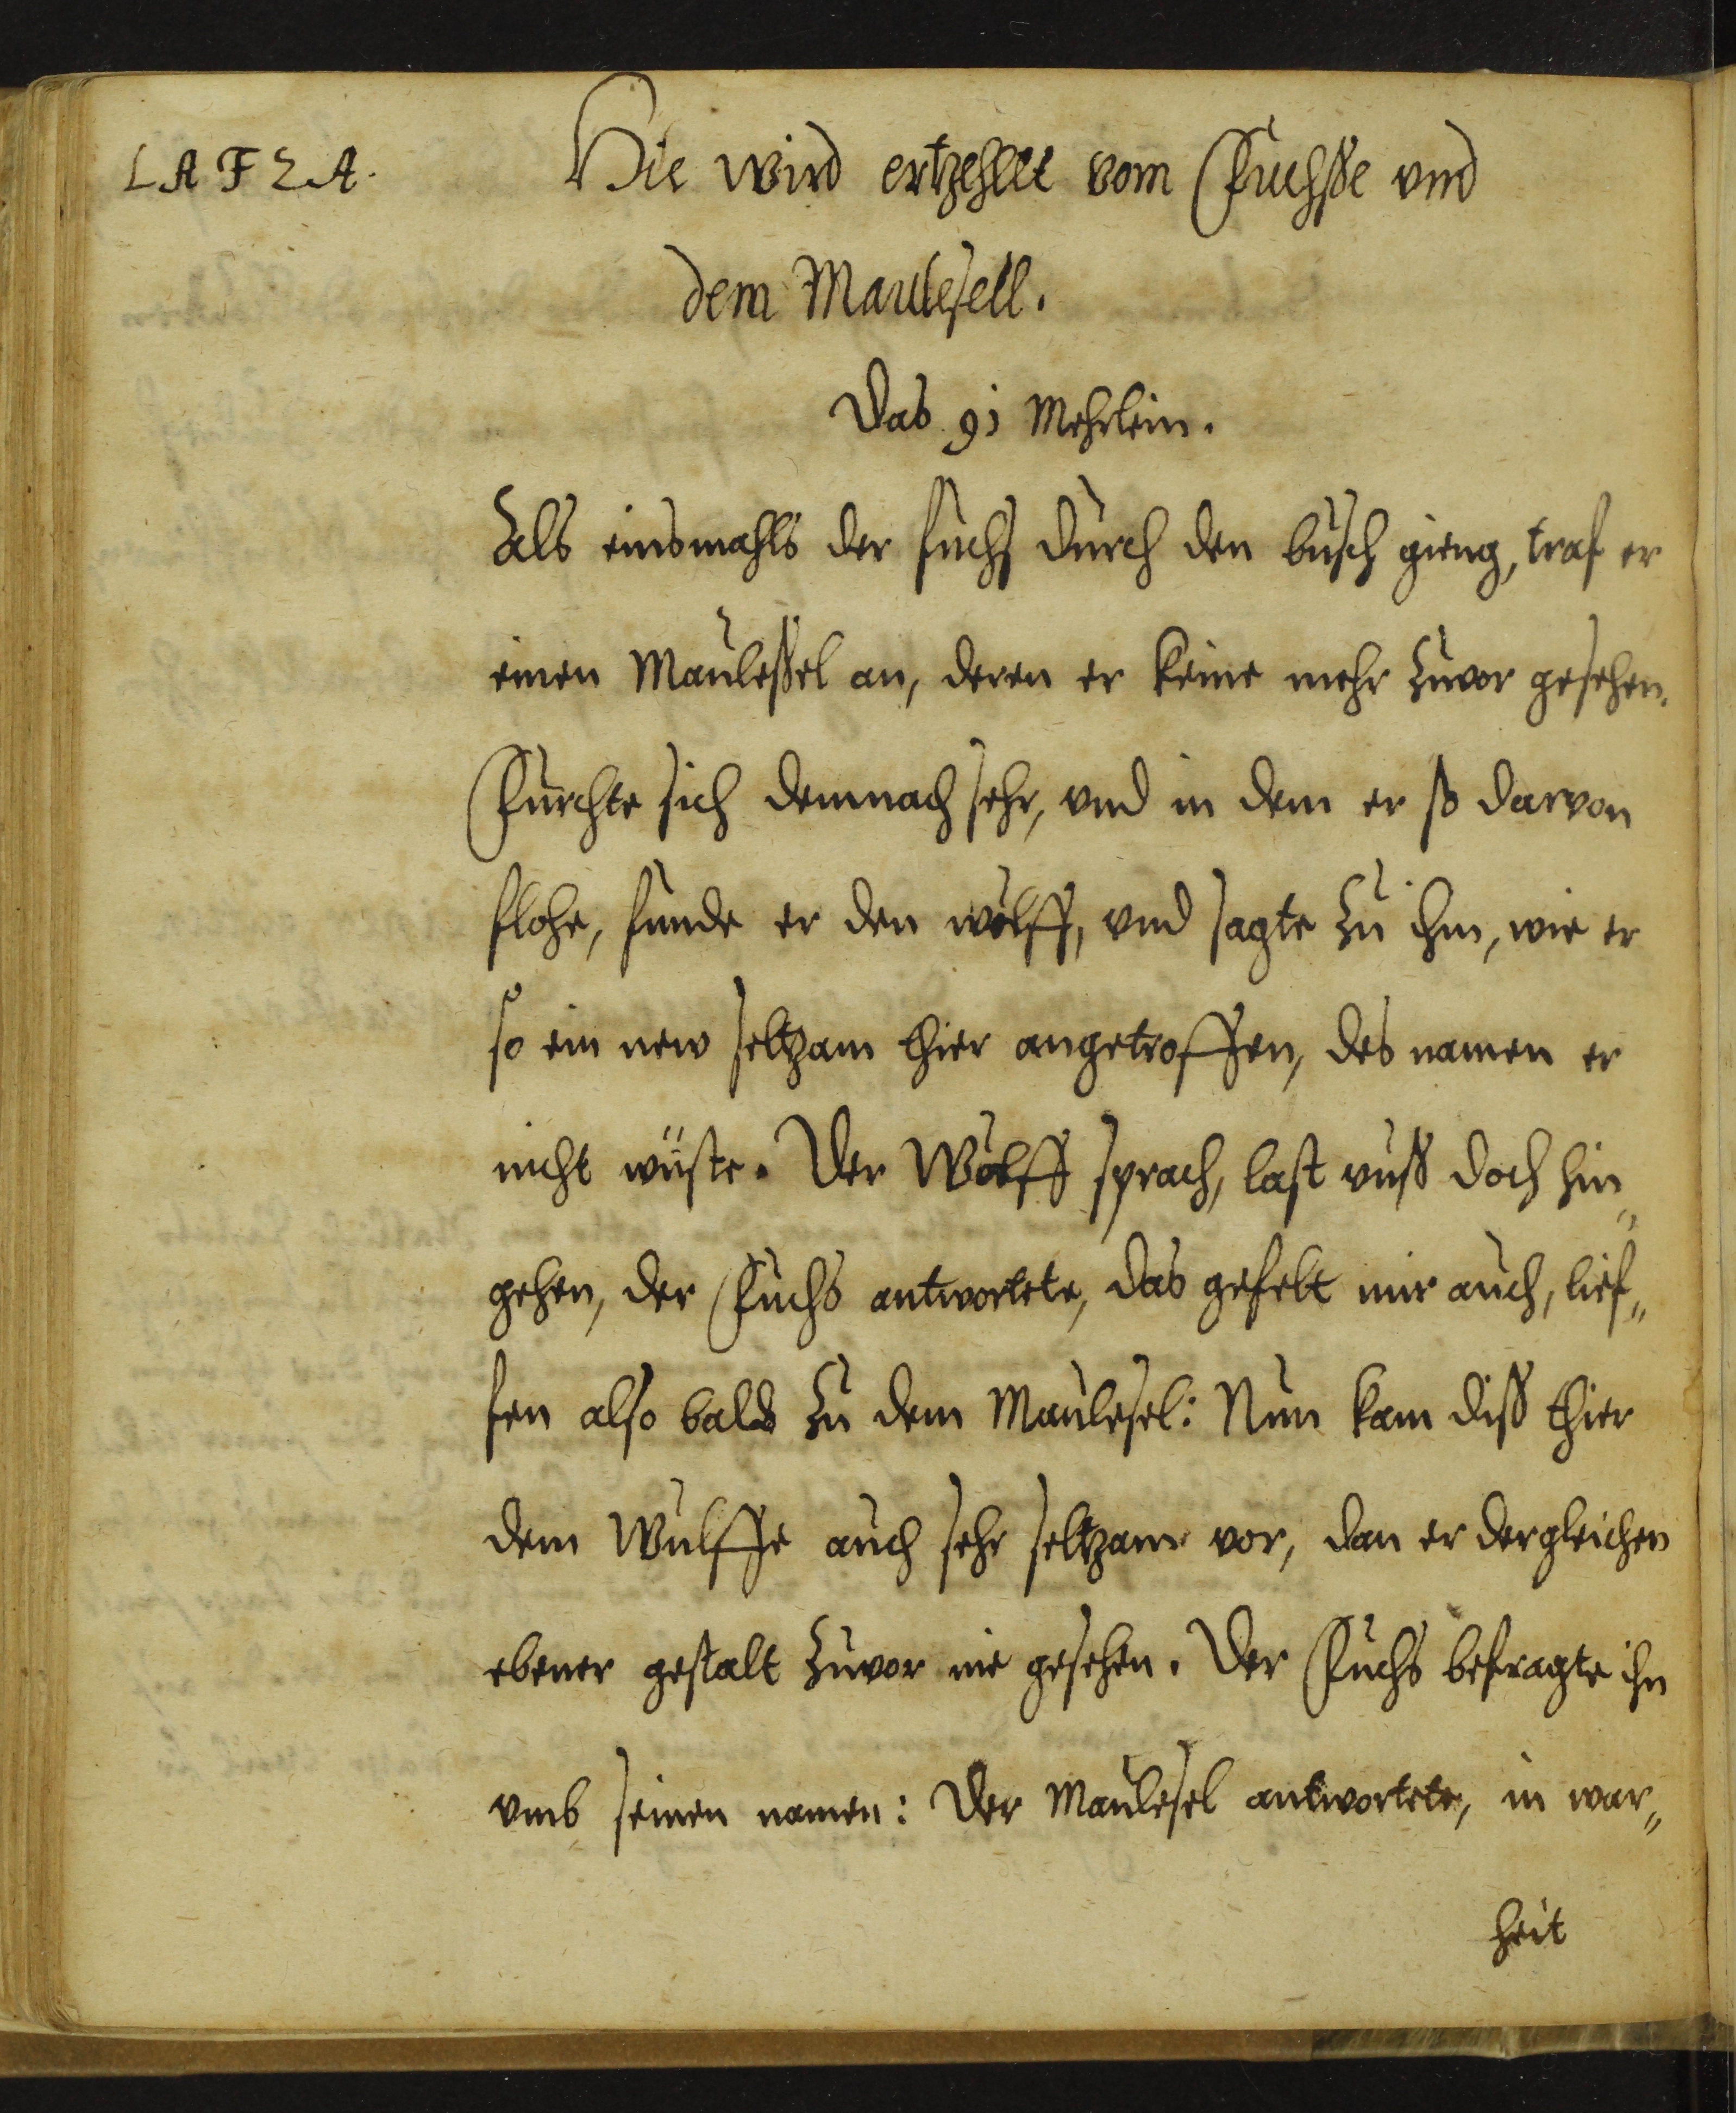 LAFZA.
Hie wird ertzehlet vom Fuchße vnd
dem Maulesell.
Das 91 Mehrlein.
Als einsmahls der fuchs durch den busch gieng, traf er
einen Mauleßel an, deren er keine mehr zuvor gesehen.
Furchte sich demnach sehr, vnd in dem er so darvon
flohe, funde er den wolff, vnd sagte zu ihm, wie er
so ein new seltzam thier angetroffen, des namen er
nicht wüste. Der Wolff sprach, last vnß doch hin„
gehen, der Fuchs antwortete, das gefelt mir auch, lief„
fen also bald zu dem Maulesel: Nun kam diß thier
dem Wulffe auch sehr seltzam vor, dan er dergleichen
ebener gestalt zuvor nie gesehen. Der Fuchs befragte ihn
vmb seinen namen: Der Maulesel antwortete, in war„
heit